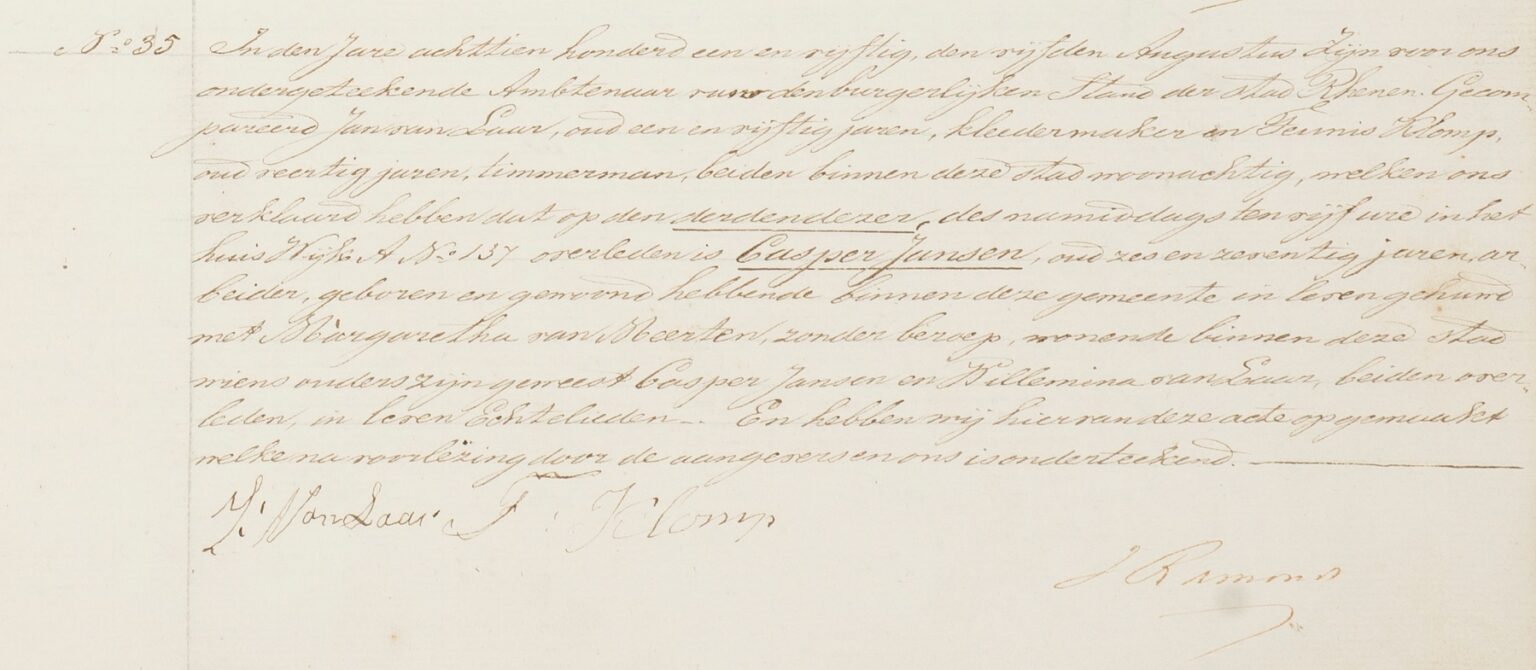 N.º 35 In den Jare achttien honderd een en vijftig, den vijfden Augustus Zijn voor ons
ondergeteekende Ambtenaar van den burgerlijken Stand der stad Rhenen. Gecom-
pareerd Jan van Laar, oud een en vijftig jaren, kleedermaker en Teunis Klomp,
oud veertig jaren, timmerman, beiden binnen deze stad woonachtig, welken ons
verklaard hebben dat op den derden dezer, des namiddags ten vijf ure in het
huis Wijk A No 137 overleden is Casper Jansen, oud zes en zeventig jaren, ar-
beider, geboren en gewoond hebbende binnen deze gemeente in leven gehuwd
met Margaretha van Meerten, zonder beroep, wonende binnen deze stad
wiens ouders zijn geweest Casper Jansen en Willemina van Laar, beiden over-
leden, in leven Echtelieden -. En hebben wij hier van deze acte opgemaakt
welke na voorlezing door de aangevers en ons is onderteekend.
J. Van Laar T: Klomp